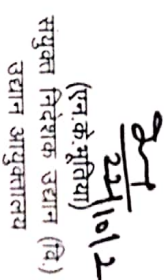 22/10/2
(एन.के.भूतिया)
संयुक्त निदेशक उद्यान (वि.)
उद्यान आयुक्तालय